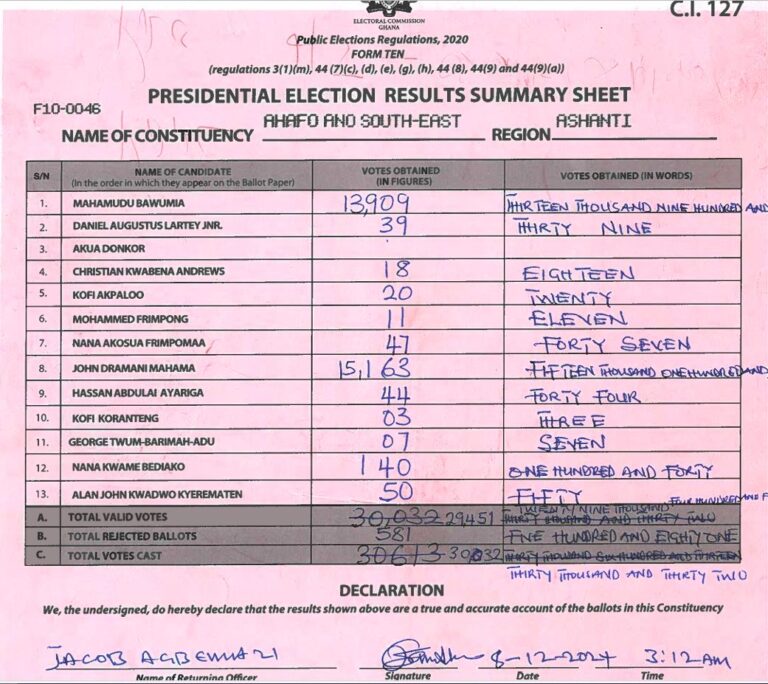 ELECTORAL COMMISSION
GHANA
C.I. 127
Public Elections Regulations, 2020
FORM TEN
(regulations 3(1)(m), 44 (7)(c), (d), (e), (g), (h), 44 (8), 44(9) and 44(9)(a))
PRESIDENTIAL ELECTION RESULTS SUMMARY SHEET
F10-0046
NAME OF CONSTITUENCY AHAFO ANO SOUTH-EAST REGION ASHANTI
S/N NAME OF CANDIDATE (In the order in which they appear on the Ballot Paper) VOTES OBTAINED (IN FIGURES) VOTES OBTAINED (IN WORDS)
1. MAHAMUDU BAWUMIA 13,909 THIRTEEN THOUSAND NINE HUNDRED AND
2. DANIEL AUGUSTUS LARTEY JNR. 39 THIRTY NINE
3. AKUA DONKOR
4. CHRISTIAN KWABENA ANDREWS 18 EIGHTEEN
5. KOFI AKPALOO 20 TWENTY
6. MOHAMMED FRIMPONG 11 ELEVEN
7. NANA AKOSUA FRIMPOMAA 47 FORTY SEVEN
8. JOHN DRAMANI MAHAMA 15,163 FIFTEEN THOUSAND ONE HUNDRED AND
9. HASSAN ABDULAI AYARIGA 44 FORTY FOUR
10. KOFI KORANTENG 03 THREE
11. GEORGE TWUM-BARIMAH-ADU 07 SEVEN
12. NANA KWAME BEDIAKO 140 ONE HUNDRED AND FORTY
13. ALAN JOHN KWADWO KYEREMATEN 50 FIFTY
TWENTY NINE THOUSAND FOUR HUNDRED AND F
A. TOTAL VALID VOTES 30,032 29451 THIRTY THOUSAND AND THIRTY TWO
B. TOTAL REJECTED BALLOTS 581 FIVE HUNDRED AND EIGHTY ONE
C. TOTAL VOTES CAST 30613 30032 THIRTY THOUSAND SIX HUNDRED AND THIRTEEN
THIRTY THOUSAND AND THIRTY TWO
DECLARATION
We, the undersigned, do hereby declare that the results shown above are a true and accurate account of the ballots in this Constituency
JACOB 8-12-2024 3:12 AM
Name of Returning Officer Signature Date Time